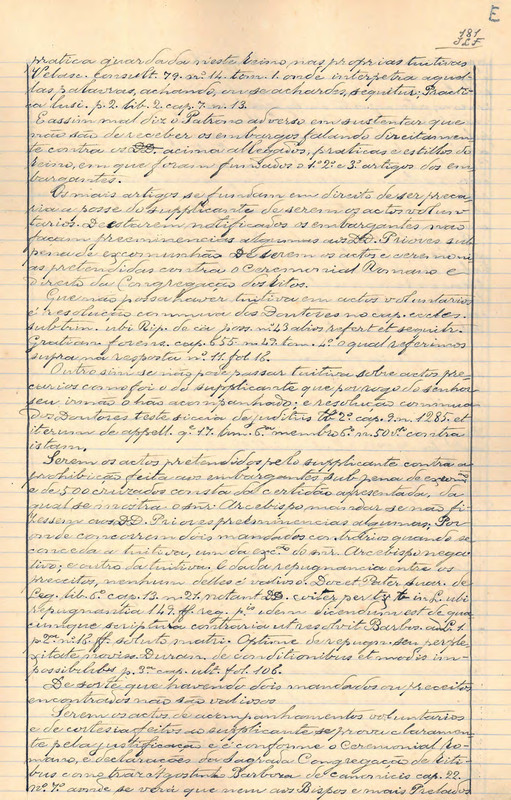 E
181
F L F
pratica guardada neste reino nas proprias tuitivas
Velasc. consult. 79. nº 14. tom. 1. onde interpetra aquel-
las palavras, achando, ou se achardes, sequitur; Practi-
ca lusi. p. 2. lib. 2. cap. 7. n. 13.
E assim mal diz o Patrono adverso em sustentar que
não são de receber os embargos falando direitamen-
te contra os DD. acima allegados, praticas e estilos do
reino, em que foram fundados o 1º 2º e 3º artigos dos em-
bargantes.
Os mais artigos se fundam em direito de ser preca-
ria a posse do supplicante de serem os actos volun-
tarios. De estarem notificados os embargantes não
façam preeminencias algumas aos DD. Priores sub
pena de excomunhão. De serem os actos e ceremoni-
as pretendidas contra o Ceremonial Romano e
Direito da Congregação dos Ritos.
Que não possa haver tuitiva em actos voluntarios
é resolução commua dos Doutores no cap. eccles.
sub trin. ubi Rip. de cã poss. nº 43 alios refert et sequitr.
Gratian forens. cap. 655 nº 49. tom. 4º o qual referimos
supra na resposta nº 11. fol 16.
Outro sim se não pode passar tuitiva sobre actos pre-
carios como foi o do supplicante que por rogo do senhor
seu irmão o hão acompanhado; e resolução commua
dos Doutores teste
de juditiis tº 2º cap. 9. n. 1285. et
iterum de appell. qº 17. lim. 6ª membro 6º n. 50 contra
istam.
Serem os actos pretendidos pelo supplicante contra a
prohibição feita aos embargantes sub pena de excomº
e de 500 cruzados consta da certidão apresentada, da
qual se mostra o snr. Arcebispo mandar se não fi-
zessem aos DD. Priores preeminencias algumas; Por
onde concorrem dois mandados contrarios quando se
conceda a tuitiva, um da excº do snr. Arcebispo nega-
tivo; e outro da tuitiva. E dada repugnancia entre os
preceitos, nenhum delles é valioso. Docet Peter Suar. de
Leg. lib. 6º cap. 13. n. 21. notant DD. coiter per tx. in L. ubi
repugnantia 149. ff. reg. idem dicendum est de qua-
cumque scriptura contraria ut resolvit Barbos. ad L. 1.
p. 2ª n. 16. ff. soluto matri. Optime de repugn. seu perple-
xitate proviss. Duram. de conditionibus et modis im-
possibilibus p. 3ª cap. ult. fol. 106.
De sorte que havendo dois mandados ou preceitos
encontrados não são valiosos.
Serem os actos de acompanhamentos voluntarios
e de cortesia feitos ao supplicante se prova claramen-
te pela justificação e é conforme o Ceremonial Ro-
mano, e declarações da Sagrada Congregação de Riti-
bus como traz Agostinho Barbosa de canonicis cap. 22.
nº 7º aonde se verá que nem aos Bispos e mais Prelados